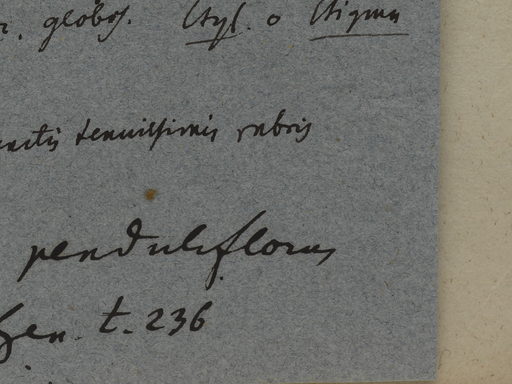 r. globos. Styl. o Stigma
punctis tenuissimis rubris
penduliflorus
Gen. t. 236